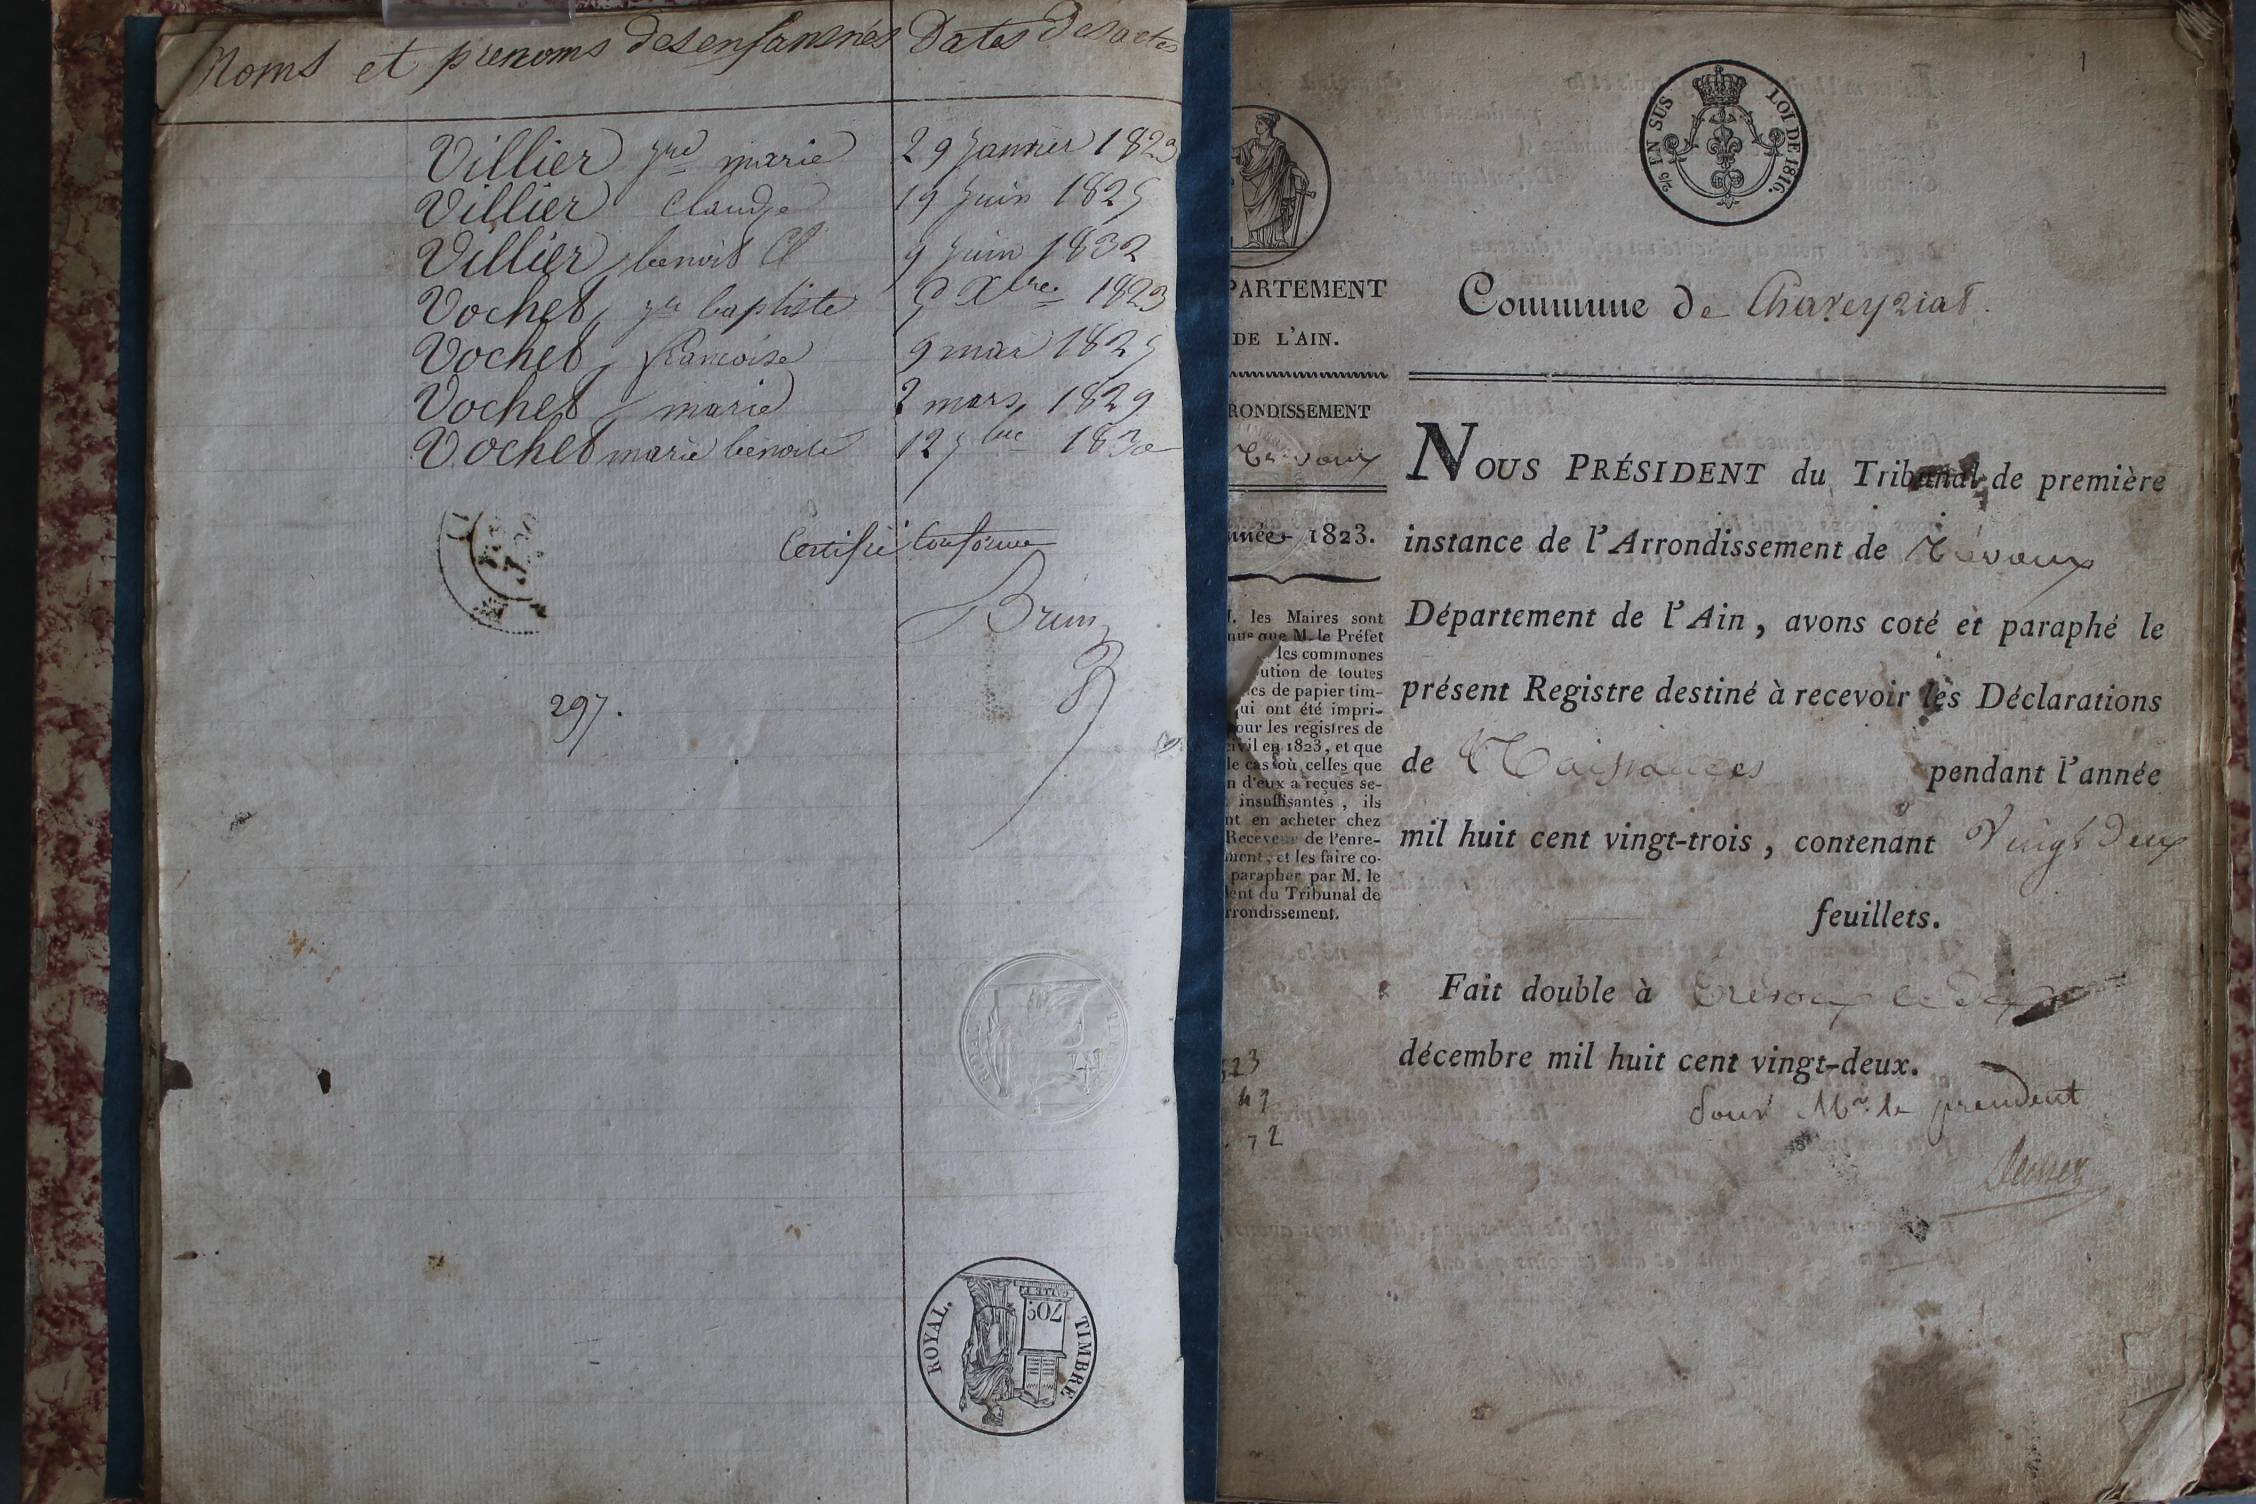 Noms et prenoms des enfans nés Dates des actes
Villier jne marie 29 Janvier 1823
Villier Claude 19 Juin 1825
Villier benoit Cl 9 Juin 1832
Vochet baptiste Xbre 1823
Vochet francoise 9 mai 1825
Vochet marie 2 mars 1829
Vochet marie benoite 12 1830
Certifié Conforme
Brun
297.
ROYAL.
TIMBRE
1
EN SUS
LOI DE 1816.
PARTEMENT
DE L'AIN.
RONDISSEMENT
nnée 1823.
M. les Maires sont
nus que M. le Préfet
les communes
ution de toutes
de papier tim-
qui ont été impri-
our les registres de
civil en 1823, et que
le cas où celles que
n d'eux a reçues se-
insuffisantes, ils
nt en acheter chez
Receveur de l'enre-
ment, et les faire co-
parapher par M. le
dent du Tribunal de
rrondissement.
523
49
72
Commune de Chaneyriat.
NOUS PRÉSIDENT du Tribunal de première
instance de l'Arrondissement de Trévoux
Département de l'Ain, avons coté et paraphé le
présent Registre destiné à recevoir les Déclarations
de Naissances pendant l'année
mil huit cent vingt-trois, contenant Vingt deux
feuillets.
Fait double à Trévoux le dix
décembre mil huit cent vingt-deux.
pour Mr. le president